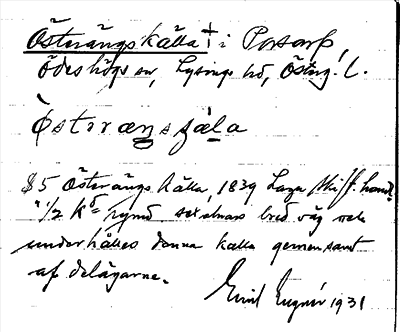 Österängs källa † i Porsarp,
Ödeshögs sn, Lysings hd, Östng. L.
Östræŋsȷ́ala
§5 Österängs källa, 1839 Laga skift. hand.
"1/2 Kd rymd sex alnars bred väg och
underhålles denna källa gemensamt
af delägarne.
Emil 1931